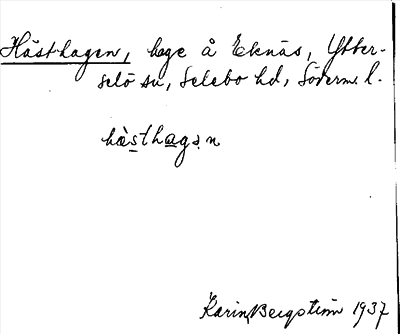 Hästhagen, hage å Eknäs, Ytter-
selö sn, Selebo hd, Söderm. l.
hästhagen
Karin Bergström 1937